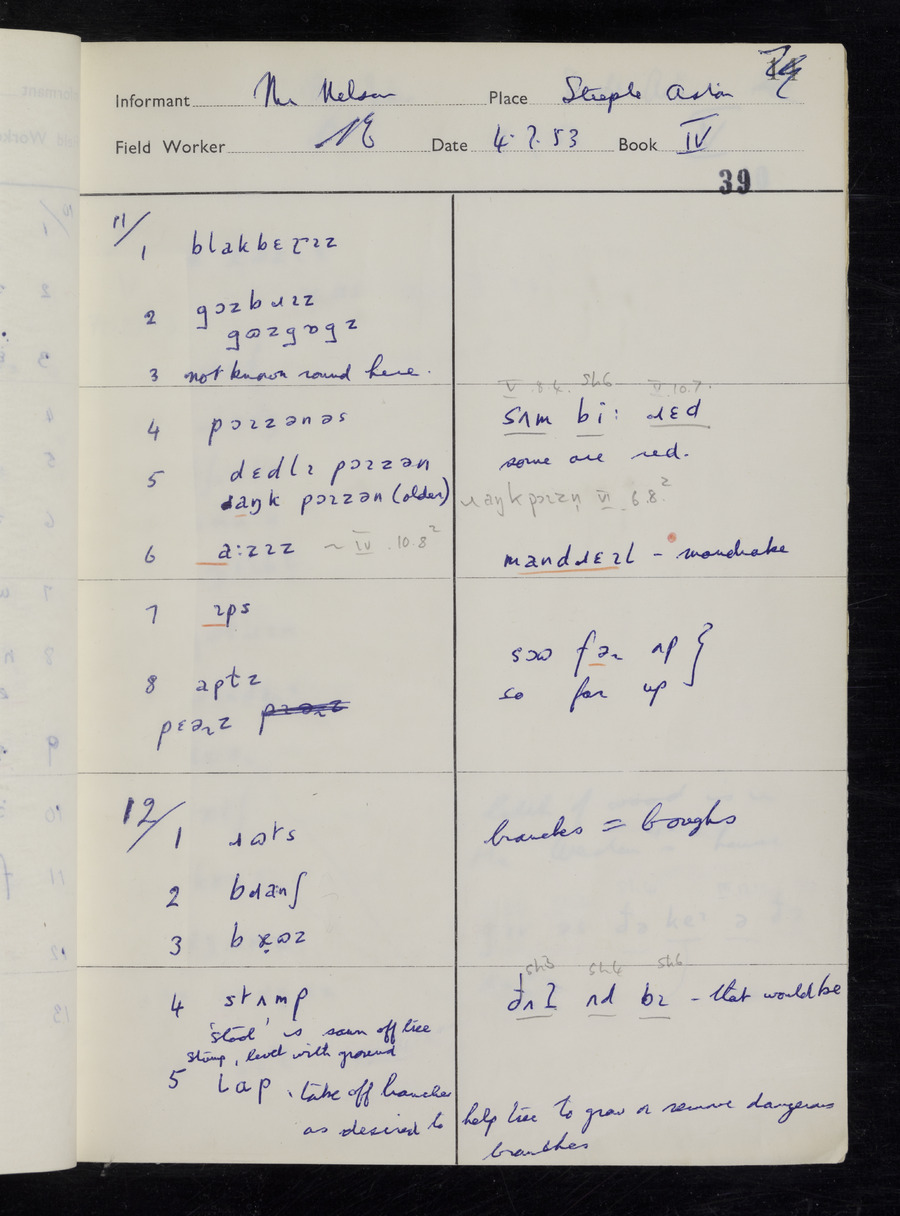 Informant Mr Nelson Place Steeple Aston
Field Worker Date 4.7.53 Book IV
39
11/
1 blakbɛɪɪz
2 gɔzbɹɪz
gɷzgɒgz
3 not known round here.
V.8.4. sh6 V.10.7.
4 pɔɪzənəs sʌm bi: ɹɛd
some are red.
5 dɛdlɪ pɔɪzən
ɹaŋk pɔɪzən (older) ɹaŋkpɔɪzn̩ VI 6.8.²
6 a:ɪzɪz ~ IV.10.8² mandɹɛɪl - mandrake
7 ɪps
sɔɷ fəɹ ʌp }
so far up
8 aptz
pɛəɹz
12/
1 ɹɷts branches = boughs
2 bɹanʃ
3 bɹɷz
sh3 sh4 sh6
4 stʌmp ðʌʔ ʌd bɪ - that would be
'stool' is sawn off tree
stump, level with ground
5 lap . take off branches
as desired to help tree to grow or remove dangerous
branches